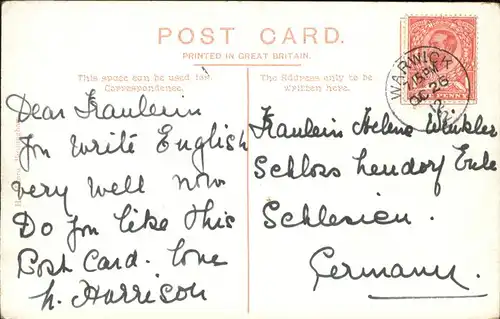 POST CARD.
PRINTED IN GREAT BRITAIN.
This space can be used for
Correspondence.
The Address only to be
written here.
WARWICK
7.15 PM
OC 26
12
PENNY
Dear Fraulein
You write English
very well now
Do you like this
Post Card. love
h. Harrison
Fraulein Helene Winkler
Schloss
Schlesien.
Germany.